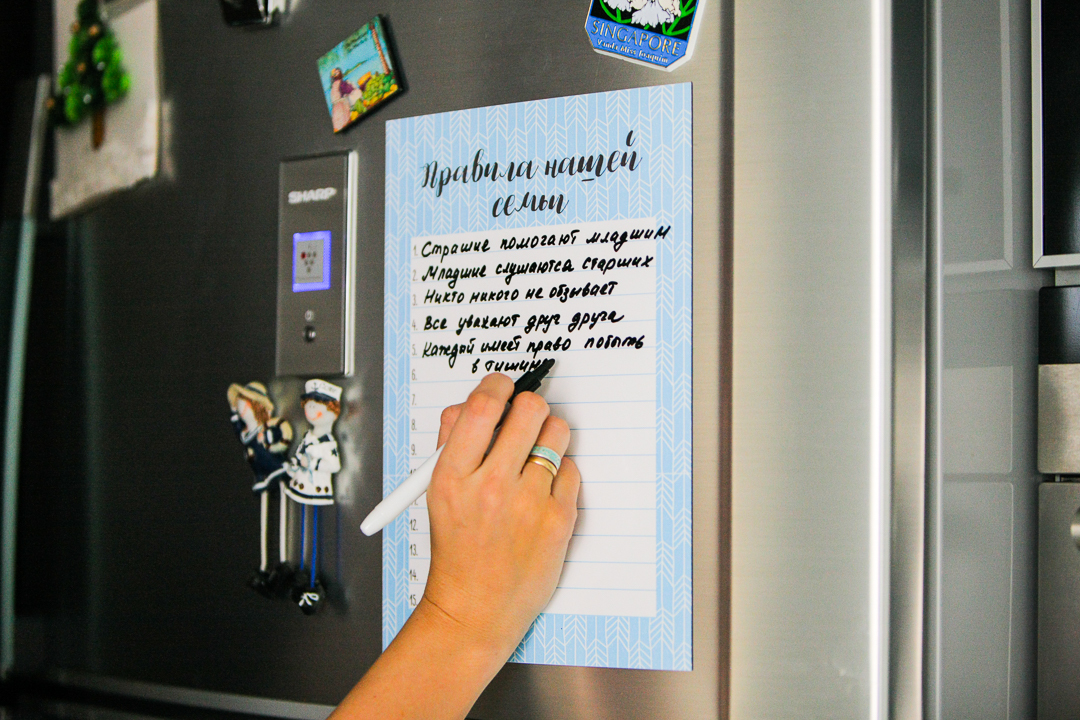 SINGAPORE
SHARP
Правила нашей
семьи
1. Страшие помогают младшим
2. Младшие слушаются старших
3. Никто никого не обзывает
4. Все уважают друг друга
5. Каждый имеет право побыть
в тишин
6.
7.
8.
9.
12.
13.
14.
15.